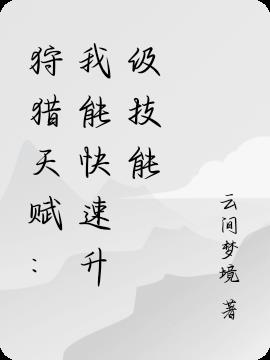 狩猎天赋：
我能快速升
级技能
云间梦境 著